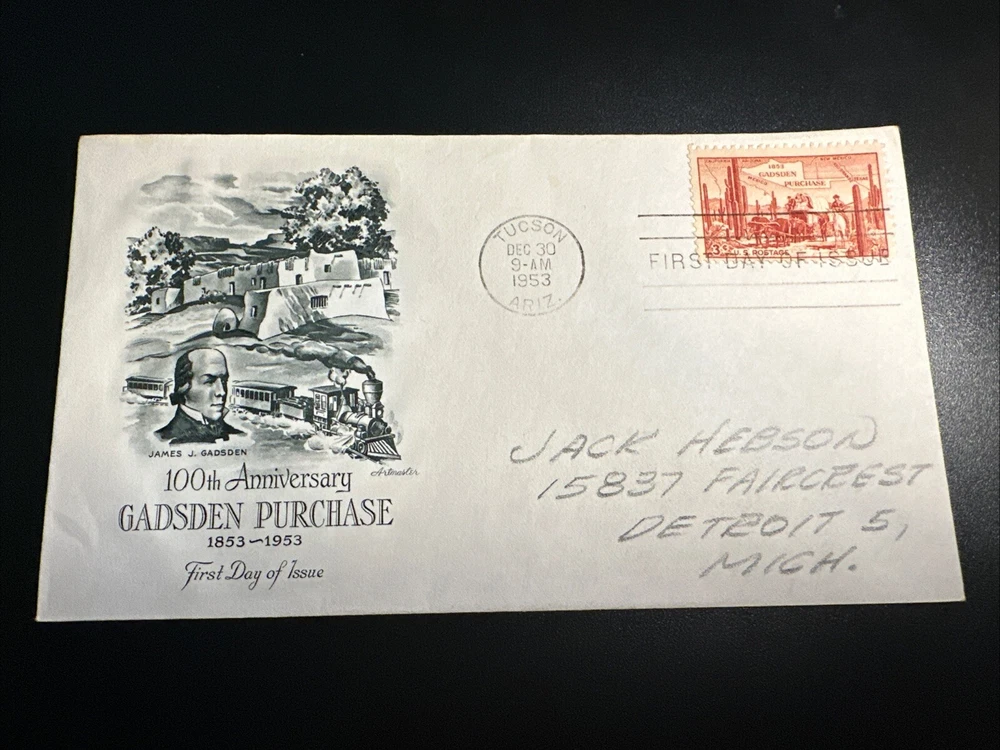 JAMES J. GADSDEN
Artmaster
100th Anniversary
GADSDEN PURCHASE
1853~1953
First Day of Issue
TUCSON
DEC 30
9-AM
1953
ARIZ.
CALIFORNIA ARIZONA NEW MEXICO
1853
GADSDEN
PURCHASE
MEXICO
3¢ U.S. POSTAGE
FIRST DAY OF ISSUE
JACK HEBSON
15837 FAIRCREST
DETROIT 5,
MICH.